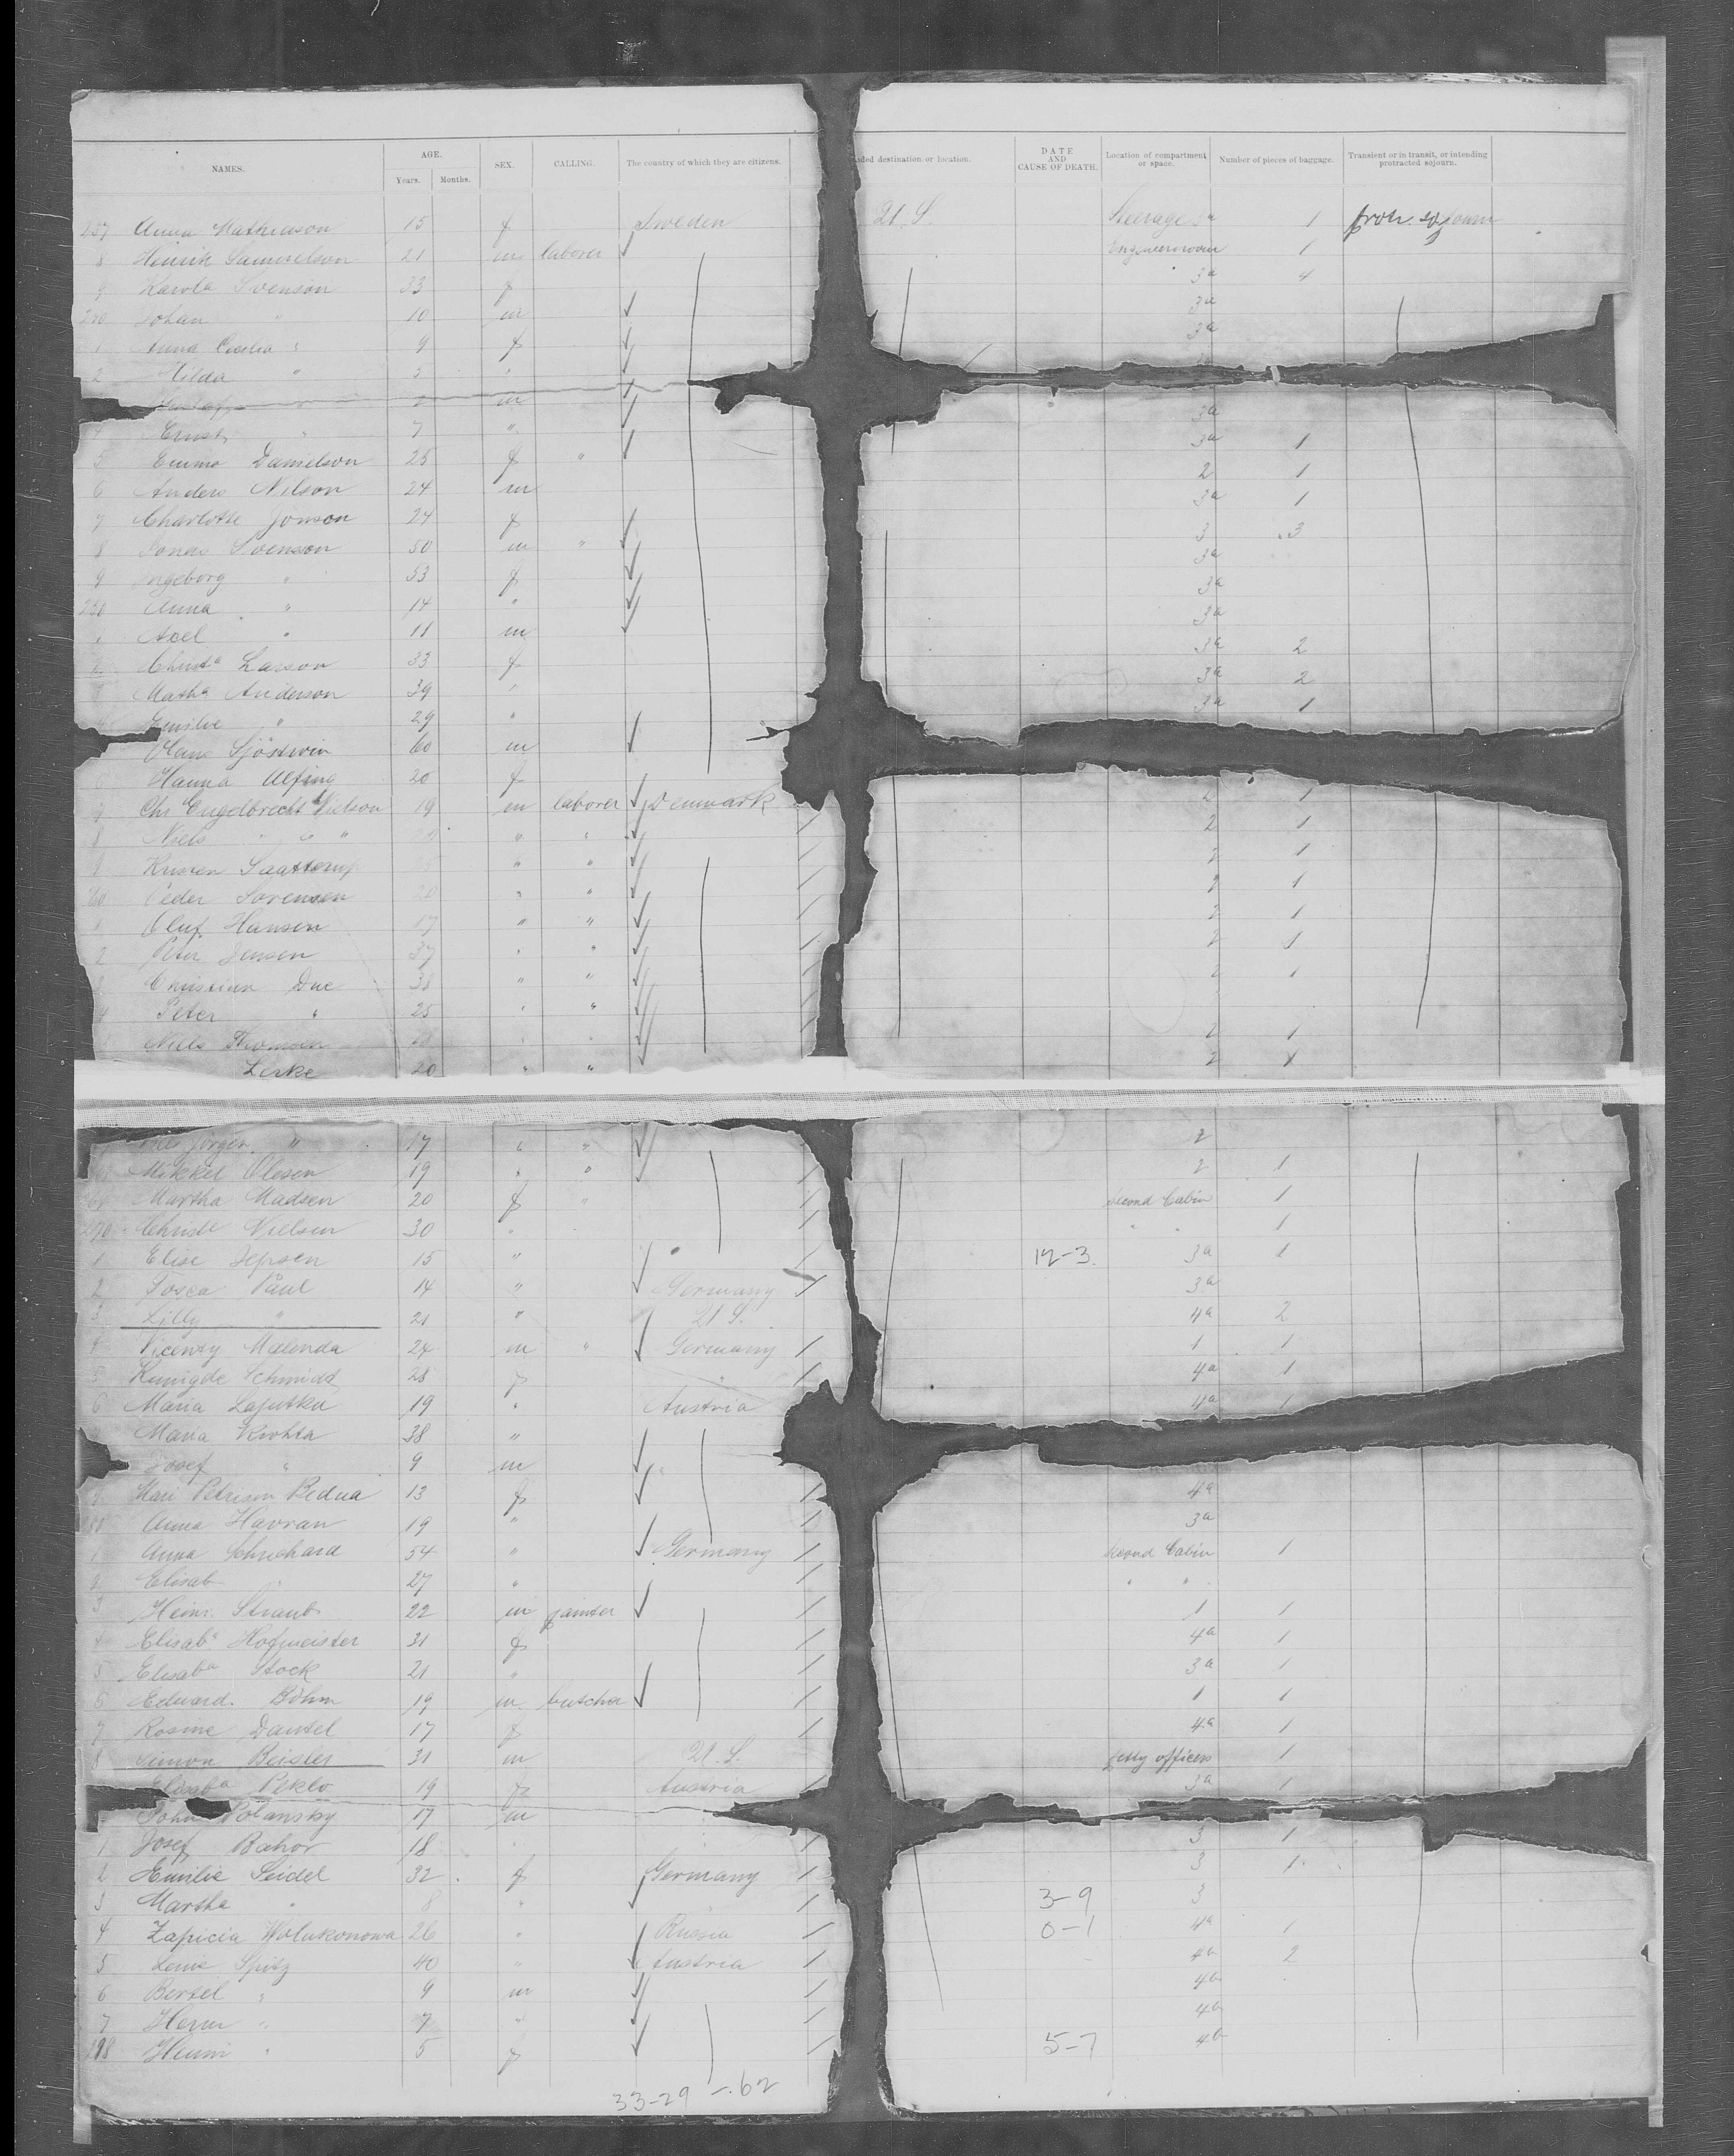 NAMES. AGE. Years. Months. SEX. CALLING. The country of which they are citizens. ded destination or location. DATE AND CAUSE OF DEATH. Location of compartment or space. Number of pieces of baggage. Transient or in transit, or intending protracted sojourn.
237 Anna Mathewson 15 f Sweden U.S. Steerage 3a 1 protr. sojourn
8 Henrik Samuelson 21 m laborer 1
9 Karola Svenson 33 f 3a 4
240 Johan " 10 m 3a
1 Anna Cecilia " 9 f 3a
2 Hilda " 5 "
Gustaf " m
4 Ernst " 7 " 3a
5 Emma Danielson 25 f " 3a 1
6 Anders Nilson 24 m 2 1
7 Charlotte Jonson 24 f 3a 1
8 Jonas Svenson 50 m " 3 3
9 Ingeborg " 53 f 3a
250 Anna " 14 " 3a
1 Axel " 11 m 3a
2 Christa Larson 33 f 3a 2
3 Matha Anderson 39 " 3a 2
4 Emilie " 29 " 3a 1
60 m
6 Hanna Alfing 20 f
7 Chr Engelbrecht Nielson 19 m laborer Denmark 2 1
8 Niels " " " " 2 1
9 Kristen " " 2 1
260 Peder Sorensen 20 " " 2 1
1 Oluf Hansen 17 " " 2 1
2 Peter Jensen 37 " " 2 1
3 Christian Due 38 " " 2 1
4 Peter " 25 " "
Niels Thomsen " " 2 1
Lerke 20 " " 2 1
Jorgen " 17 " " 2
Mikkel Olesen 19 " " 2 1
Martha Madsen 20 f " Second Cabin 1
270 Christe Nielsen 30 " " " 1
1 Elise Jepsen 15 " 12-3 3a 1
2 Rosea Paul 14 " Germany 3a
3 Lilly " 21 " U.S. 4a 2
4 Vicenty Malenda 24 m " Germany 1 1
5 Kunigde Schmidt 28 f " 4a 1
6 Maria Laputka 19 " Austria 4a 1
Maria 38 "
Josef " 9 m "
9 Mari Peterson Bedna 13 f 4a
Anna Havran 19 " 3a
1 Anna Schuchard 54 " Germany Second Cabin 1
2 Elisab " 27 " " "
3 Heinr. Straub 22 m painter 1 1
4 Elisaba Hofmeister 31 f 4a 1
5 Elisaba Stock 21 " 3a 1
6 Edward. Böhm 19 m butcher 1 1
7 Rosine Dantel 17 f 4a 1
8 Simon Beisler 31 m U.S. petty officers 1
Elisaba Peklo 19 f Austria 3a 1
John Polansky 17 m
1 Josef Bahor 18 " 3 1
2 Emilie Seidel 32 f Germany 3 1
3 Martha " 8 " 3-9 3
4 Zapicia Wolukonowa 26 " Russia 0-1 4a 1
5 Lene Spitz 40 " Austria 4a 2
6 Bertel " 9 m 4a
7 Herm " 7 " 4a
298 Henni " 5 f 5-7 4a
33-29 -. 62